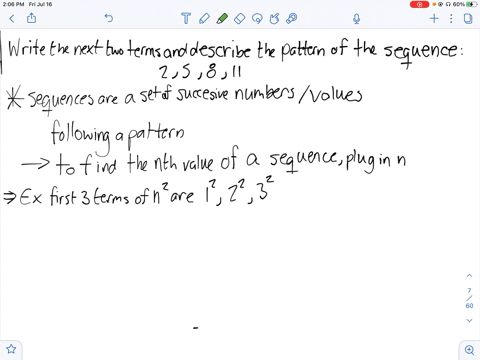 2:06 PM Fri Jul 16
60%
Write the next two terms and describe the pattern of the sequence:
2, 5, 8, 11
* sequences are a set of succesive numbers/values
following a pattern
→ to find the nth value of a sequence, plug in n
⇒ Ex first 3 terms of n² are 1², 2², 3²
7
/
60